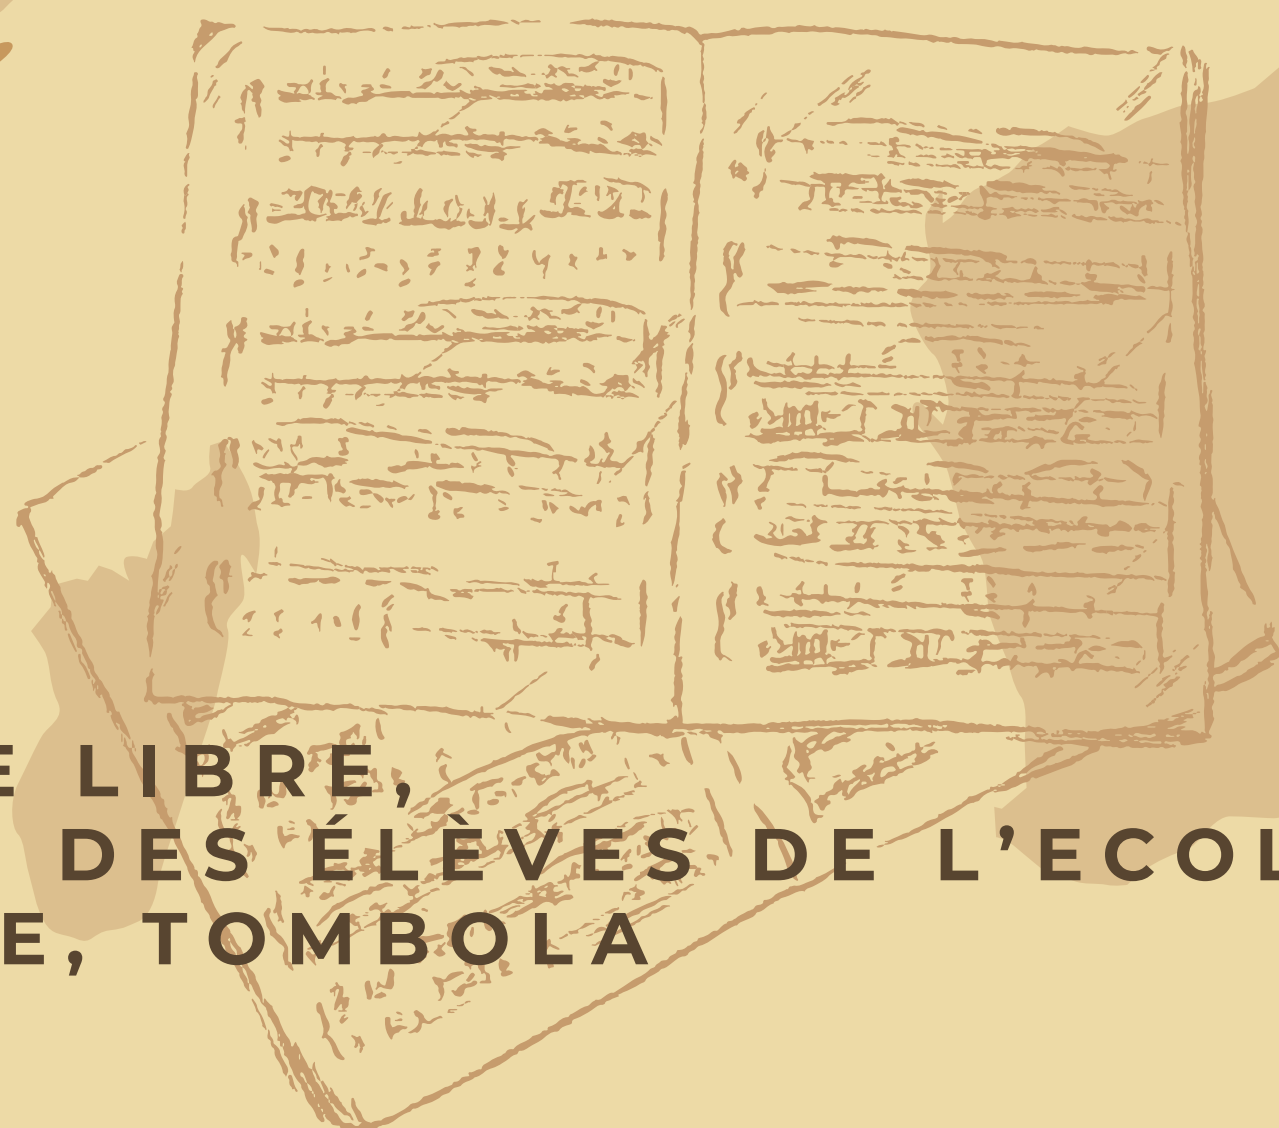 E LIBRE,
DES ÉLÈVES DE L’ECOL
E, TOMBOLA